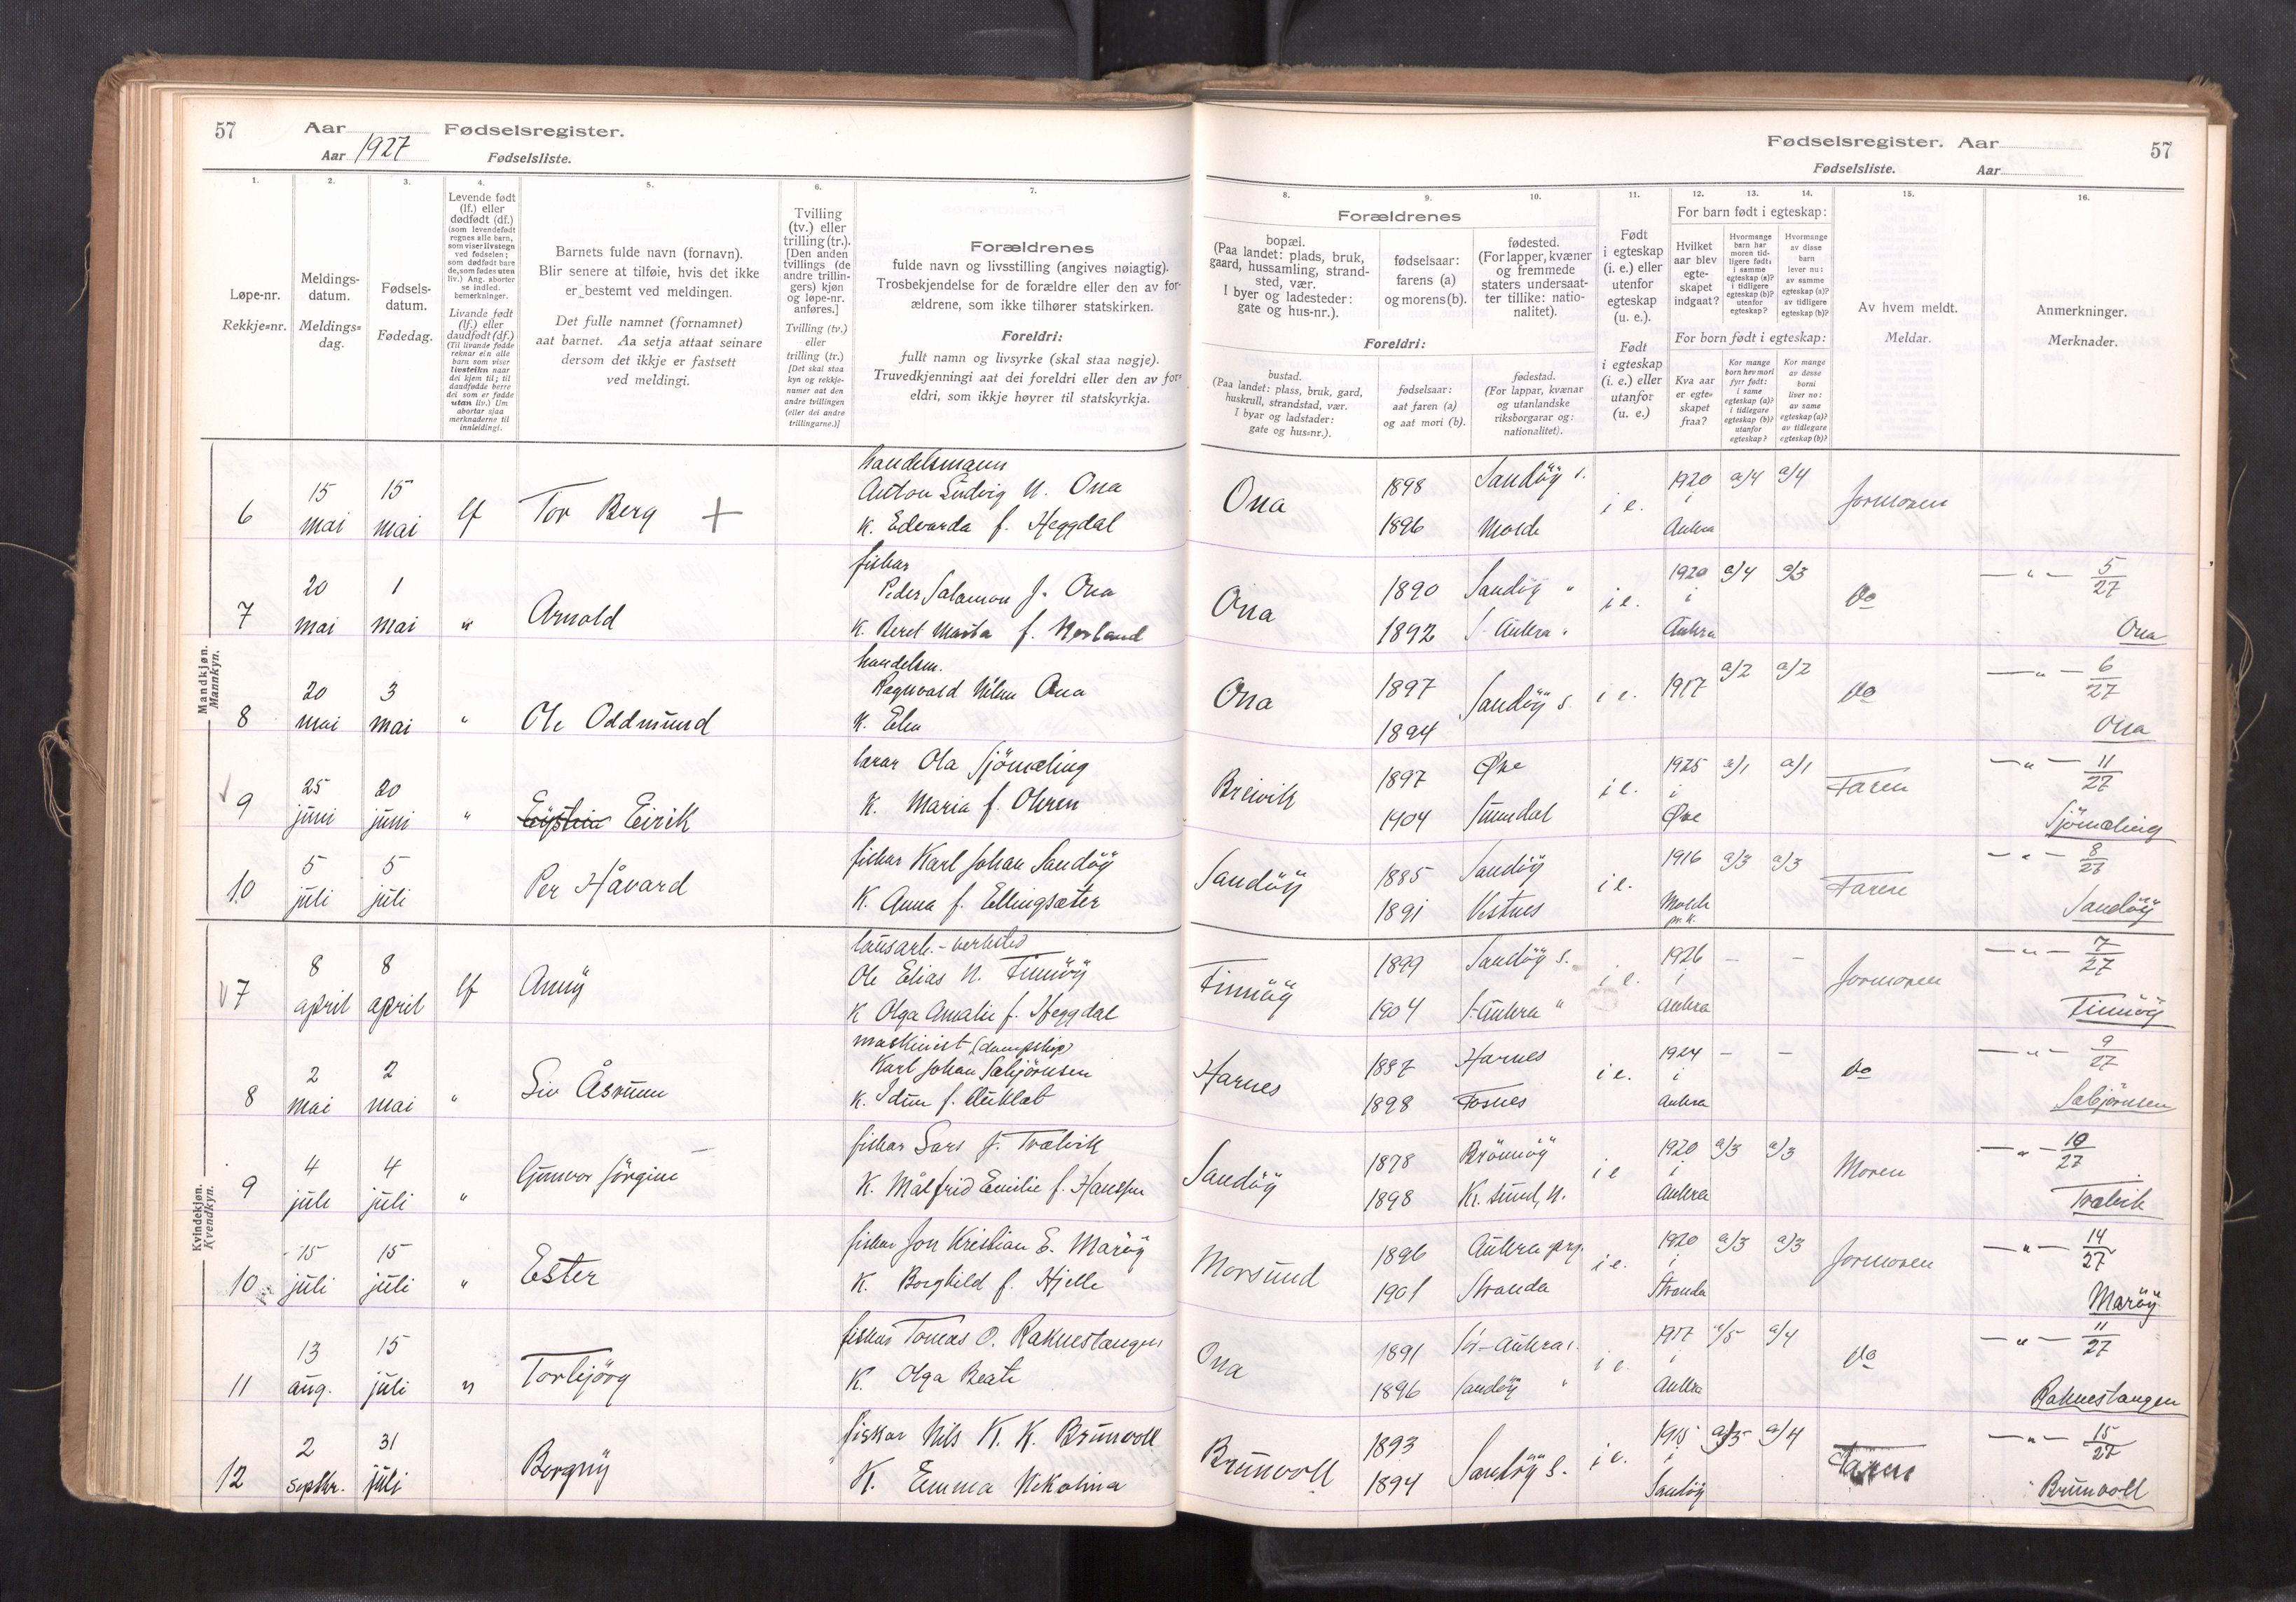 57
Aar
Fødselsregister.
Aar 1927
Fødselsliste.
1.
2.
3.
4.
5.
6.
7.
Løpe-nr.
Rekkje=nr.
Meldings-
datum.
Meldings=
dag.
Fødsels-
datum.
Fødedag.
Levende født
(lf.) eller
dødfødt (df.)
(som levendefødt
regnes alle barn,
som viser livstegn
ved fødselen;
som dødfødt bare
de, som fødes uten
liv.) Ang. aborter
se indled.
bemerkninger.
Livande født
(lf.) eller
daudfødt (df.)
(Til livande fødde
reknar ein alle
barn som viser
livsteikn naar
dei kjem til; til
daudfødde berre
dei som er fødde
utan liv.) Um
abortar sjaa
merknaderne til
innleiding.
Barnets fulde navn (fornavn).
Blir senere at tilføie, hvis det ikke
er bestemt ved meldingen.
Det fulle namnet (fornamnet)
aat barnet. Aa setja attaat seinare
dersom det ikkje er fastsett
ved meldingi.
Tvilling
(tv.) eller
trilling (tr.).
[Den anden
tvillings (de
andre trillin-
gers) kjøn
og løpe-nr.
anføres.]
Tvilling (tv.)
eller
trilling (tr.)
[Det skal staa
kyn og rekkje-
numer aat den
andre tvillingen
(eller dei andre
trillingarne.)]
Forældrenes
fulde navn og livsstilling (angives nøiagtig).
Trosbekjendelse for de forældre eller den av for-
ældrene, som ikke tilhører statskirken.
Foreldri:
fullt namn og livsyrke (skal staa nøgje).
Truvedkjenningi aat dei foreldri eller den av for=
eldri, som ikkje høyrer til statskyrkja.
Mandkjøn.
Mannkyn.
6
15 mai
15 mai
lf
Tor Berg +
handelsmann
Anton Ludvig N. Ona
K. Edvarda f. Heggdal
7
20 mai
1 mai
"
Arnold
fiskar
Peder Salamon J. Ona
K. Beret Marta f. Norland
8
20 mai
3 mai
"
Ole Oddmund
handelsm.
Ragnvald Ona
K. Elen
9
25 juni
20 juni
"
Eystein Eirik
lærar Ola Sjömæling
K. Maria f. Ohren
10
5 juli
5 juli
Per Håvard
fiskar Karl Johan Sandöy
K. Anna f. Ellingsæter
Kvindekjøn.
Kvendkyn.
7
8 april
8 april
lf
Anny
Ole Elias N. Finnöy
K Olga Amalie f. Heggdal
8
2 mai
2 mai
"
Siv Åsrunn
maskinist (dampskip)
Karl Johan Sæbjörnsen
K. Idun f. Auklat
9
4 juli
4 juli
"
Gunvor Jörgine
fiskar Lars J. Trælvik
K. Målfrid Emilie f. Hansen
10
15 juli
15 juli
"
Ester
fiskar Jon Kristian E. Maröy
K. Borghild f. Hjelle
11
13 aug.
15 juli
"
Torbjörg
fiskar Tomas O. Raknestangen
K. Olga Beate
12
2 septbr.
31 juli
Borgny
fiskar Nils K. K. Brunvoll
K. Emma Nikolina
Fødselsregister. Aar
57
Fødselsliste.
Aar
8.
9.
10.
11.
12.
13.
14.
15.
16.
Forældrenes
bopæl.
(Paa landet: plads, bruk,
gaard, hussamling, strand-
sted, vær.
I byer og ladesteder:
gate og hus-nr.).
fødselsaar:
farens (a)
og morens (b).
fødested.
(For lapper, kvæner
og fremmede
staters undersaat-
ter tillike: natio-
nalitet).
Foreldri:
bustad.
(Paa landet: plass, bruk, gard,
huskrull, strandstad, vær.
I byar og ladstader:
gate og hus=nr.).
fødselsaar:
aat faren (a)
og aat mori (b).
fødestad.
(For lappar, kvænar
og utanlandske
riksborgarar og:
nationalitet).
Født
i egteskap
(i. e.) eller
utenfor
egteskap
(u. e.).
Født
i egteskap
(i. e.) eller
utanfor
(u. e.)
For barn født i egteskap:
Hvilket
aar blev
egte-
skapet
indgaat?
Hvormange
barn har
moren tid-
ligere født:
i samme
egteskap (a)?
i tidligere
egteskap (b)?
utenfor
egteskap?
Hvormange
av disse
barn
lever nu:
av samme
egteskap (a)?
av tidligere
egteskap (b)?
For born født i egteskap:
Kva aar
er egte=
skapet
fraa?
Kor mange
born hev mori
fyrr født:
i same
egteskap (a)?
i tidlegare
egteskap (b)?
utanfor
egteskap?
Kor mange
av desse
borni
liver no:
av same
egteskap (a)?
av tidlegare
egteskap (b)?
Av hvem meldt.
Meldar.
Anmerkninger.
Merknader.
Ona
1898
1896
Sandöy s.
Molde
i e.
1920 i Aukra
a/4
a/4
Jormoren
Ona
1890
1892
Sandöy "
S-Aukra "
i e.
1920 i Aukra
a/4
a/3
do
— " — 5/27
Ona
Ona
1897
1894
Sandöy s.
i e.
1917
a/2
a/2
do
— " — 6/27
Ona
Breivik
1897
1904
Øre
Sunndal
i e.
1925 i Øre
a/1
a/1
Faren
— " — 11/27
Sjömæling
Sandöy
1885
1891
Sandöy
Vestnes
i e.
1916 Molde pr. k.
a/3
a/3
Faren
— " — 8/28
Sandöy
Finnöy
1899
1904
Sandöy s.
S-Aukra "
i e.
1926 i Aukra
–
–
Jormoren
— " — 7/27
Finnöy
Harnes
1887
1898
Harnes
Fosnes
i e.
1924 i Aukra
–
–
do
— " — 9/27
Sæbjörnsen
Sandöy
1878
1898
Brönnöy
Kr. sund, N.
i e
1920 i Aukra
a/3
a/3
Moren
— " — 10/27
Trælvik
Morsund
1896
1901
Aukra prg.
Stranda
i e.
1920 i Stranda
a/3
a/3
Jormoren
— " — 14/27
Maröy
Ona
1891
1896
Sör-Aukra s.
Sandöy "
i e.
1917 i Aukra
a/5
a/4
do
— " — 11/27
Raknestangen
Brunvoll
1893
1894
Sandöy s.
i e.
1915 i Sandöy
a/5
a/4
Faren
— " — 15/27
Brunvoll